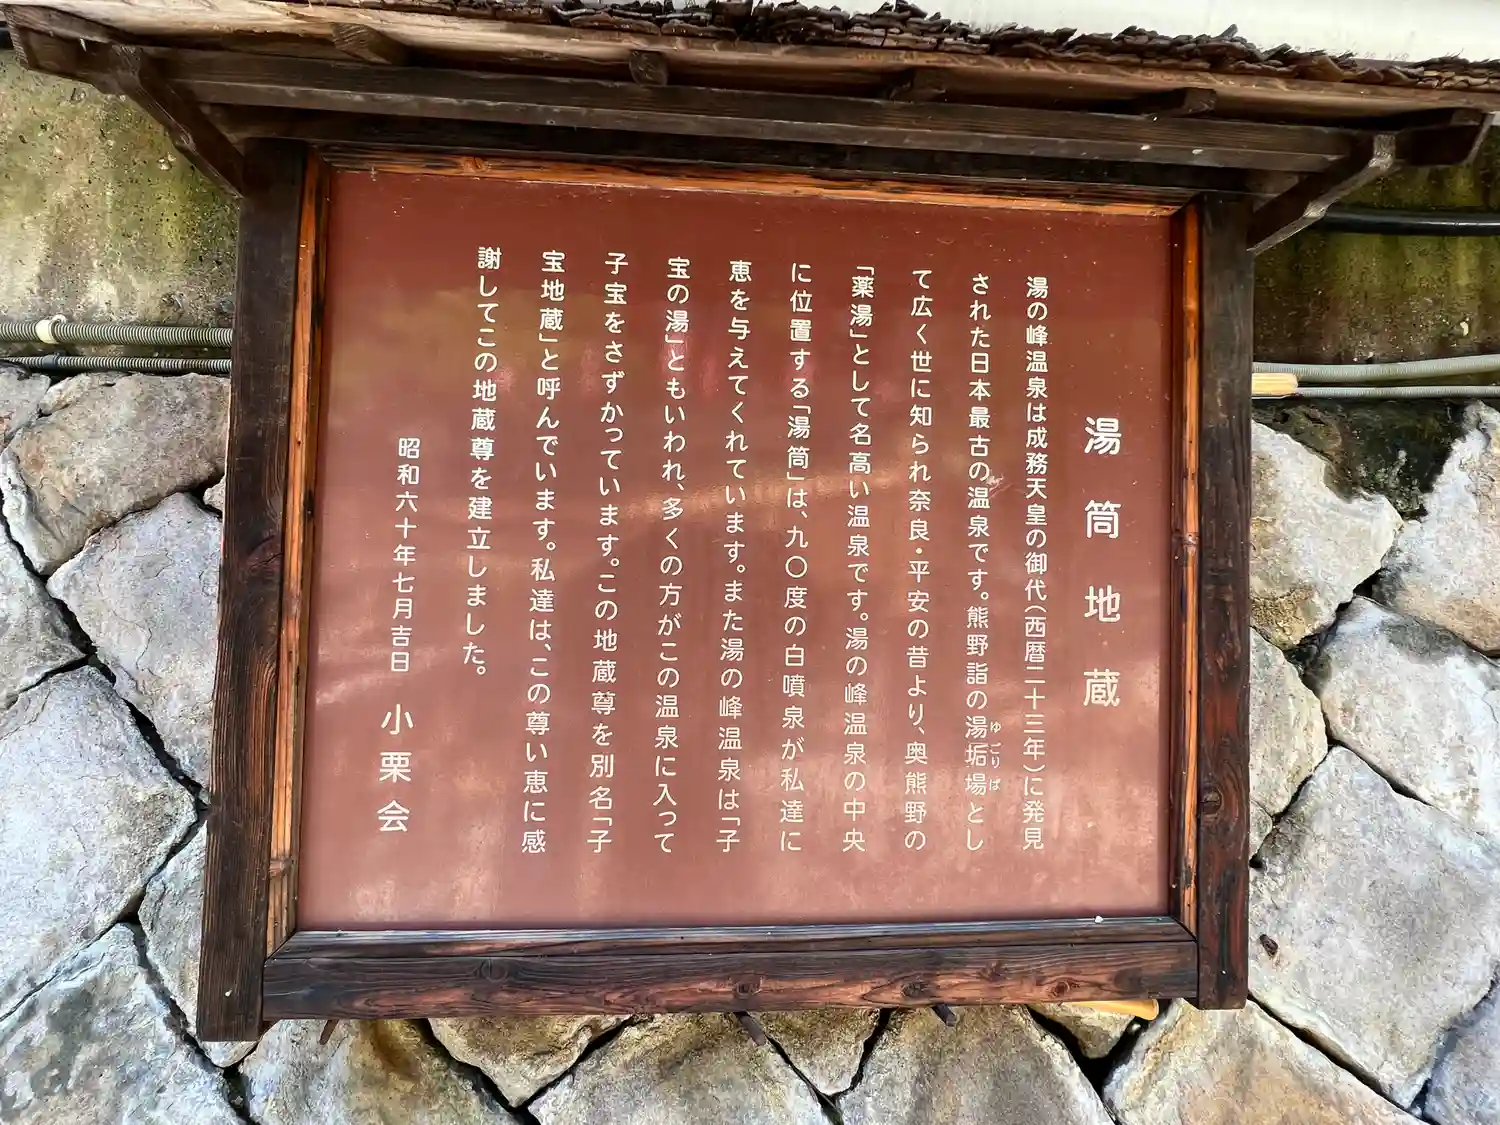 湯筒地蔵
湯の峰温泉は成務天皇の御代(西暦二十三年)に発見
された日本最古の温泉です。熊野詣の湯垢場とし
ゆごりば
て広く世に知られ奈良・平安の昔より、奥熊野の
「薬湯」として名高い温泉です。湯の峰温泉の中央
に位置する「湯筒」は、九〇度の白噴泉が私達に
恵を与えてくれています。また湯の峰温泉は「子
宝の湯」ともいわれ、多くの方がこの温泉に入って
子宝をさずかっています。この地蔵尊を別名「子
宝地蔵」と呼んでいます。私達は、この尊い恵に感
謝してこの地蔵尊を建立しました。
昭和六十年七月吉日 小栗会